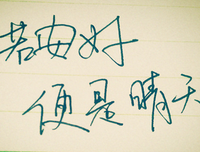 若安好
便是晴天